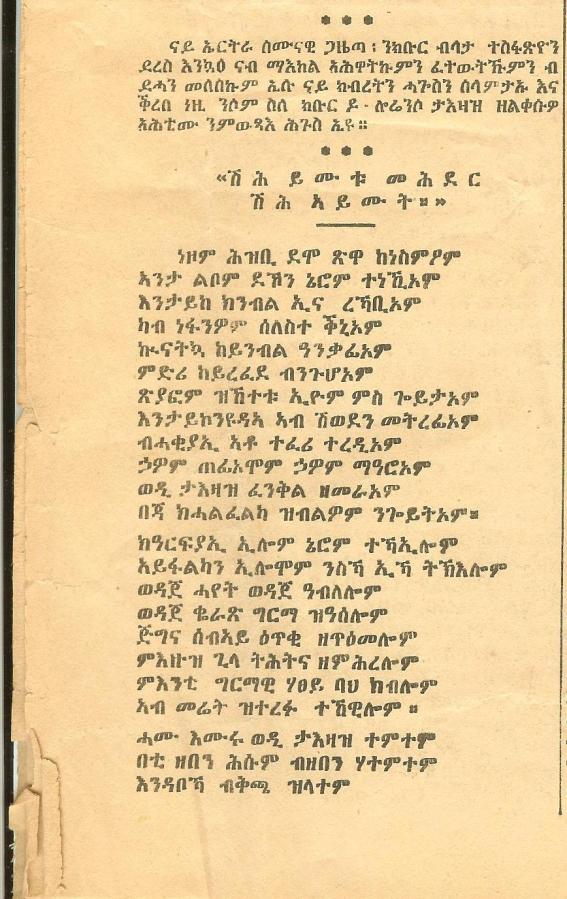 * * *
ናይ ኤርትራ ሰሙናዊ ጋዜጣ ፡ ንክቡር ብላታ ተስፋጽዮን
ደረስ እንኳዕ ናብ ማእከል ኣሕዋትኩምን ፈተውትኹምን ብ
ደሓን መለሰኩም ኢሉ ናይ ክብረትን ሓጐስን ሰላምታኡ እና
ቕረበ ነዚ ንሶም ስለ ክቡር ዶ · ሎሬንሶ ታእዛዝ ዘልቀሱዎ
ኣሕቲሙ ንምውዳእ ሕጉስ ኢዩ ።
* * *
«ሽ ሕ ይ ሙ ቱ መ ሕ ደ ር
ሽ ሕ ኣ ይ ሙ ት ። »
ነዞም ሕዝቢ ደሞ ጽዋ ከነስምዖም
ኣንታ ልቦም ደኽን ኔሮም ተነኺኦም
እንታይከ ክንብል ኢና ረኻቢኦም
ካብ ነፋንዎም ሰለስተ ቕኒኦም
ኲናትኳ ከይንብል ዓንቃፊኦም
ምድሪ ከይረፈደ ብንጉሆኦም
ጽያፎም ዝኸተቱ ኢዮም ምስ ጐይታኦም
እንታይከንዩዳኣ ኣብ ሽወደን መትረፊኦም
ብሓቂያኢ ኣቶ ተፈሪ ተረዲኦም
ኃዎም ጠፊኦሞም ኃዎም ማዕሮኦም
ወዲ ታእዛዝ ፈንቅል ዘመራኦም
በጃ ክሓልፈልካ ዝብልዎም ንጐይትኦም።
ክዓርፍያኢ ኢሎም ኔሮም ተኻኢሎም
ኣይፋልካን ኢሎሞም ንስኻ ኢኻ ትኽእሎም
ወዳጀ ሓየት ወዳጀ ዓብለሎም
ወዳጀ ቈራጽ ግርማ ዝዓሰሎም
ጅግና ሰብኣይ ዕጥቂ ዘጥዕመሎም
ምእዙዝ ጊላ ትሕትና ዘምሕረሎም
ምእንቲ ግርማዊ ሃፀይ ባህ ክብሎም
ኣብ መሬት ዝተረፉ ተኸዊሎም ።
ሓሙ እሙሩ ወዲ ታእዛዝ ተምተም
በቲ ዘበን ሕሱም ብዘበን ሃተምተም
እንዳቦኻ ብቅጫ ዝላተም